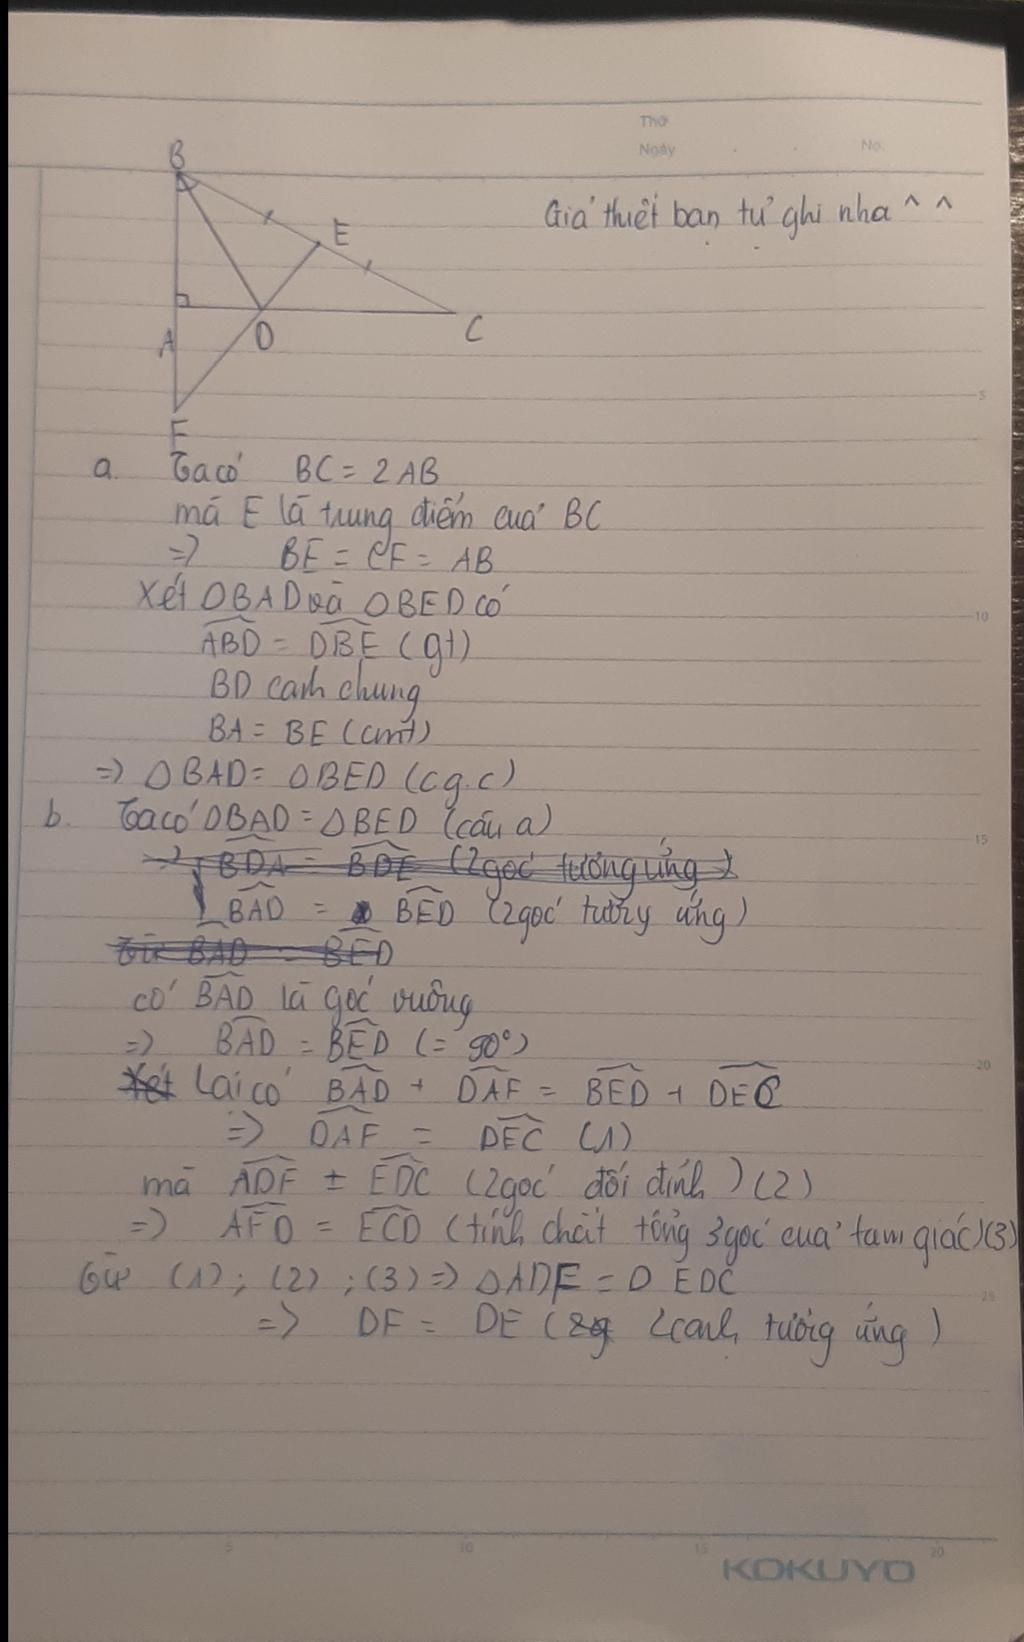 Thứ
Ngày . . No.
Giả thiết bạn tự ghi nha ^ ^
B
E
A
D
C
F
5
a. Ta có BC = 2 AB
mà E là trung điểm của BC
=> BE = CE = AB
Xét ΔBAD và ΔBED có
10
ABD = DBE (gt)
BD cạnh chung
BA = BE (cmt)
=> ΔBAD = ΔBED (c g.c)
b. Ta có ΔBAD = ΔBED (câu a)
15
=> BDA = BDE (2 góc tương ứng)
BAD = BED (2 góc tương ứng)
Từ BAD = BED
có BAD là góc vuông
=> BAD = BED (= 90°)
20
Xét Lại có BAD + DAF = BED + DEC
=> DAF = DEC (1)
mà ADF = EDC (2 góc đối đỉnh) (2)
=> AFD = ECD (tính chất tổng 3 góc của tam giác) (3)
Từ (1); (2); (3) => ΔADF = Δ EDC
25
=> DF = DE ( 2 cạnh tương ứng )
5 10 15 20
KOKUYO